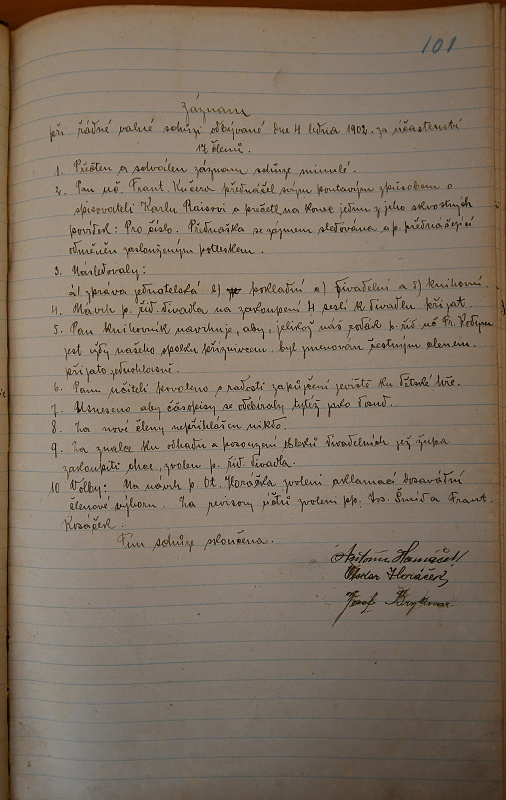 101
Záznam
při řádné valné schůzi odbývané dne 4 ledna 1902. za účastenství
17 členů.
1. Přečten a schválen záznam schůze minulé.
2. Pan uč. Frant. Kučera přednášel svým poutavým způsobem o
spisovateli Karlu Raisovi a přečetl na konec jednu z jeho skvostných
povídek: Pro číslo. Přednáška se zájmem sledována a p. přednášející
odměněn zaslouženým potleskem.
3. Následovaly:
a) zpráva jednatelská b) pokladní c) divadelní a d) knihovní.
4. Návrh p. řid. divadla na zakoupení 4 seslí k divadlu přijat.
5. Pan knihovník navrhuje, aby, jelikož náš rodák p. řid. uč Fr.
jest vždy našeho spolku příznivcem, byl jmenován čestným členem.
přijato jednohlasně.
6. Panu učiteli povoleno s radostí zapůjčení jeviště ku dětské hře.
7. Usneseno aby časopisy se odebíraly tytéž jako
8. Za nové členy nepřihlášen nikdo.
9. Za znalce ku odhadu a posouzení obleků divadelních jež župa
zakoupiti chce, zvolen p. řid. divadla.
10 Volby: Na návrh p. Ot. Horáčka zvoleni aklamací dosavádní
členové výboru. Za revisory účtů zvoleni pp: Jos. Šmíd a Frant.
Kosáček.
Tím schůze skončena.
Antonín
Otokar Horáček,
Josef